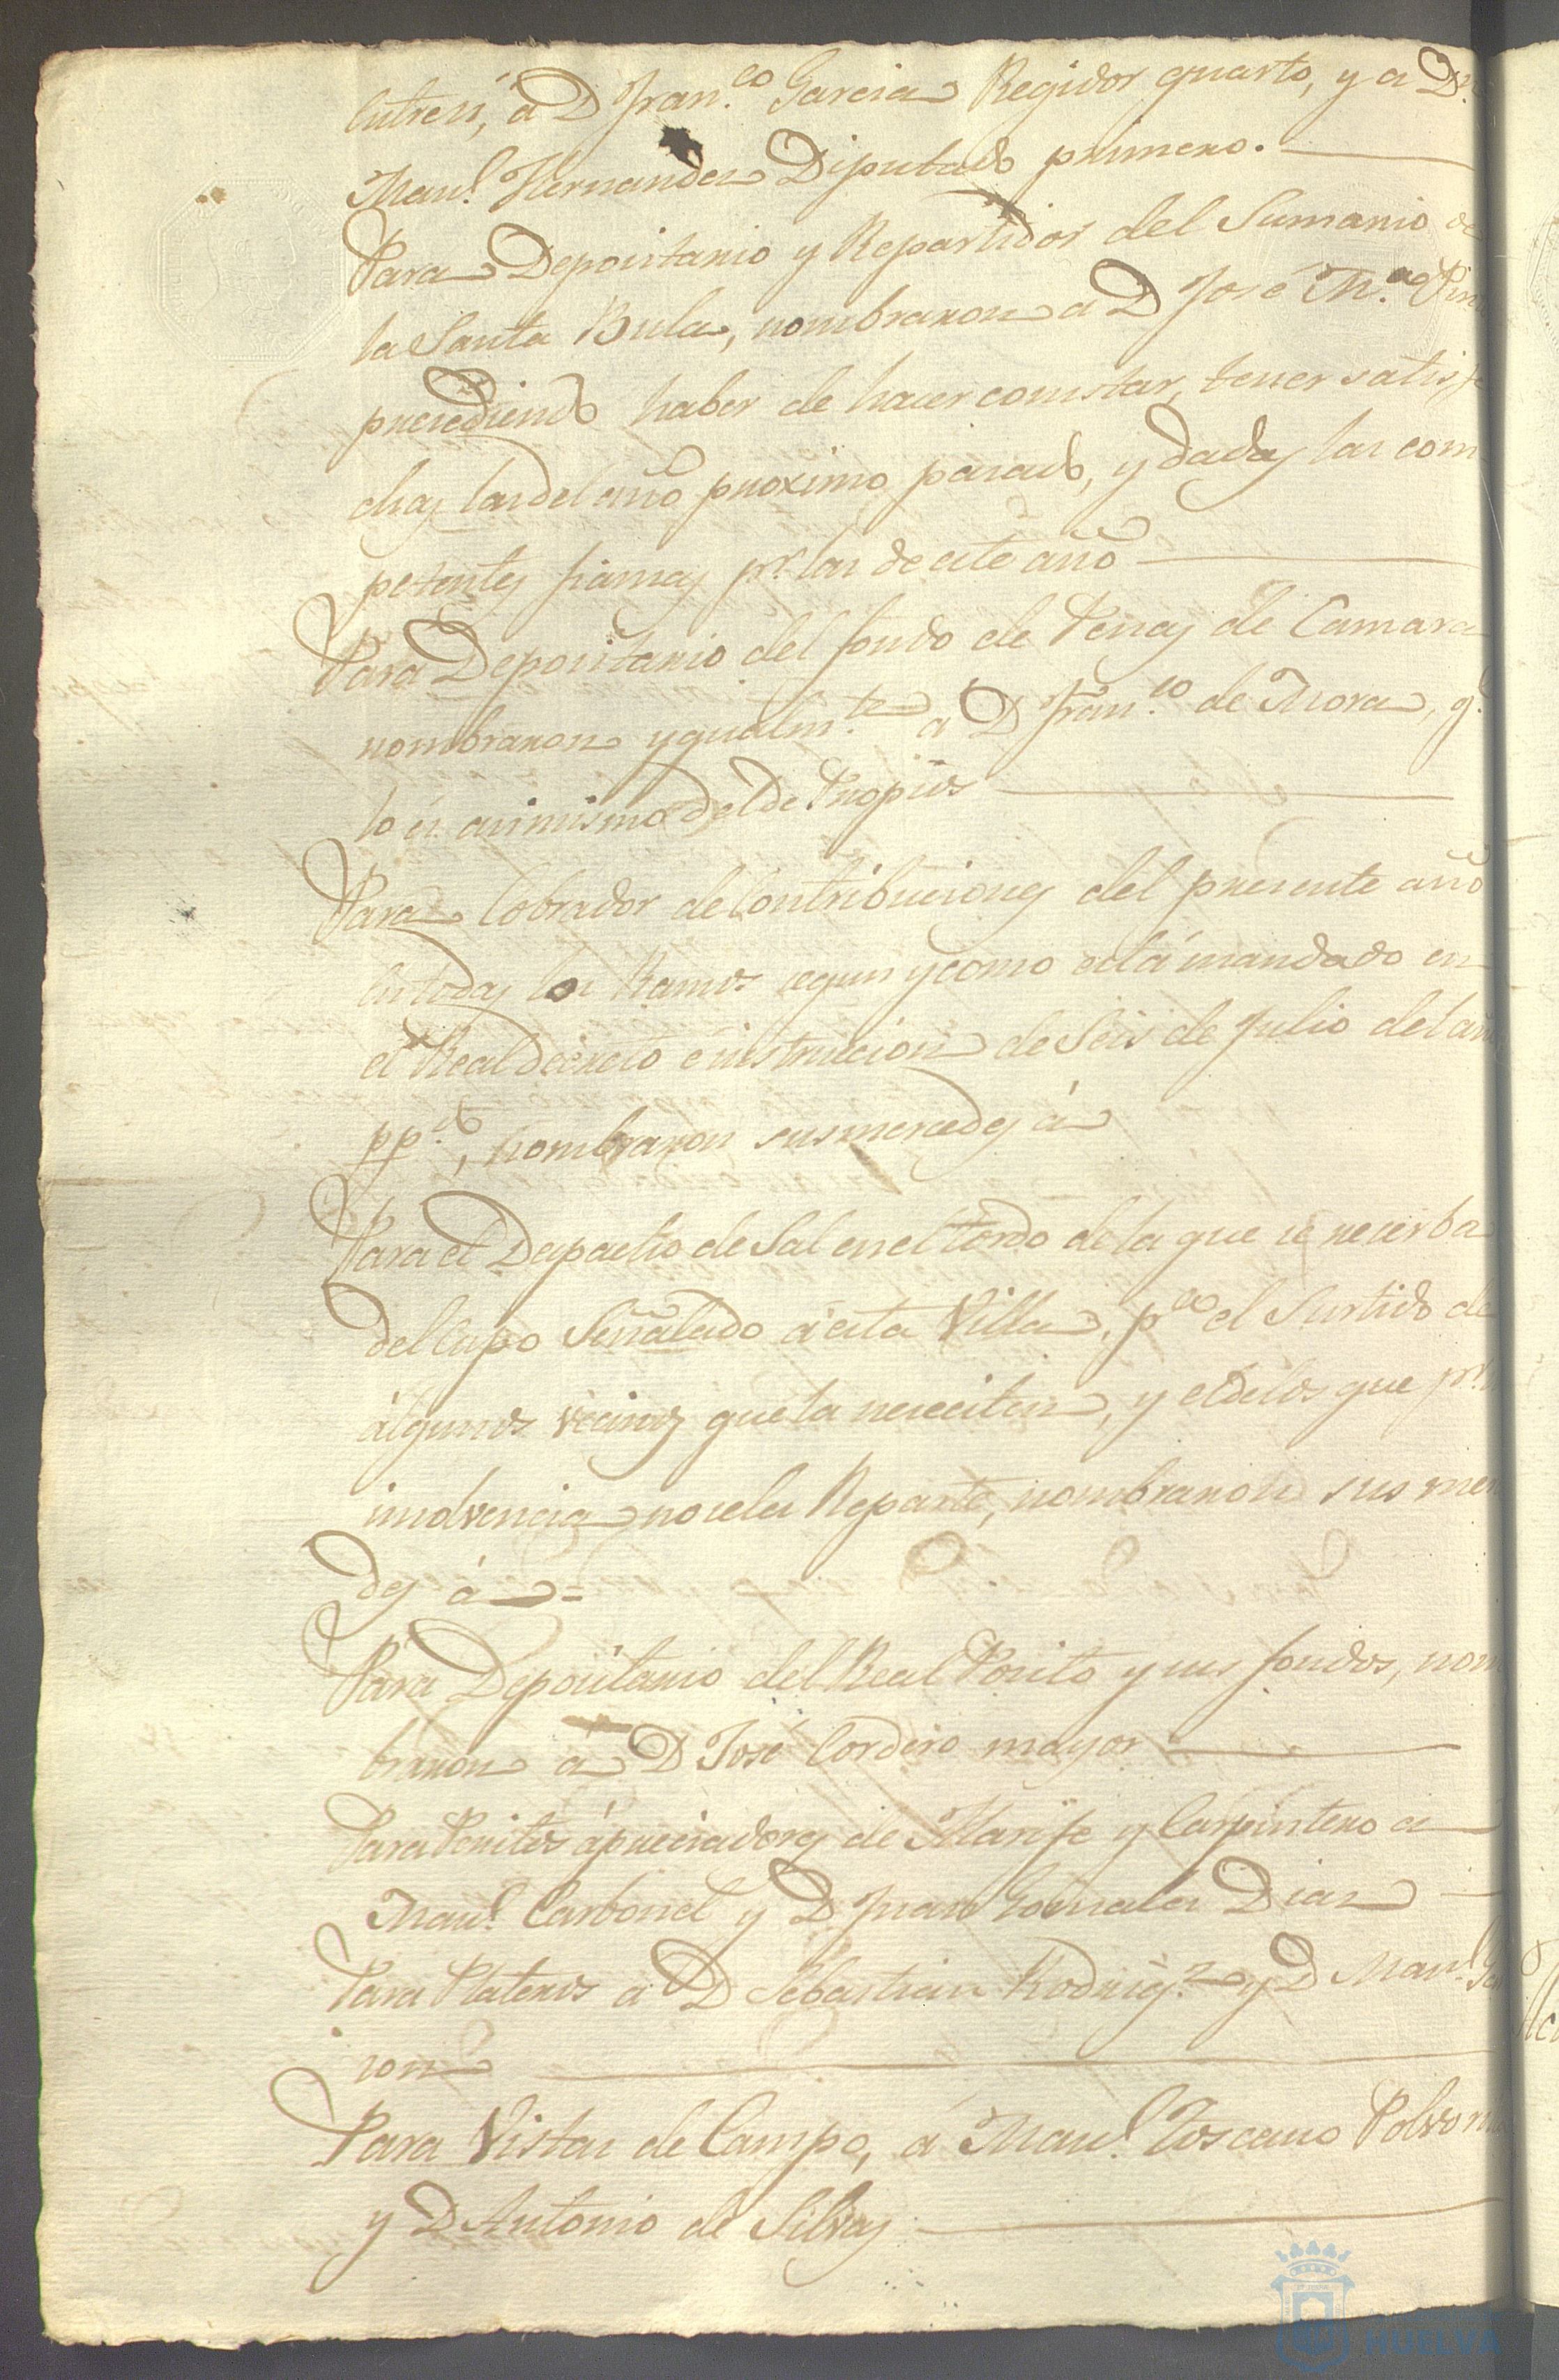 Cutren, á D Fran.co Garcia Regidor quarto, y a Dn
Man.l Hernandez Diputado primero.
Para Depocitario y Repartidor del Sumario de
la Santa Bula, nombraron a D José M.a
precediendo haber de hacer constar, tener satisf
chas las del año proximo pasado, y dadas las com
petentes fianzas pr. las de este año
Para Depocitario del fondo de Penas de Camara
nombraron ygualm.te a D Fran.co de Mora, q.
lo es asimismo del de Propios
Para Cobrador de Contribuciones del presente año
en todos los Ramos segun y como está mandado en
el Real Decreto e instruccion de Seis de Julio del añ
pp.do, nombraron sus mercedes á
Para el Depacho de Sal en el tordo de la que se recerba
del Cupo Señalado a esta Villa, p.a el Surtido de
algunos vecinos que la nececiten, y el de los que pr.
insolvencia no se les Reparte, nombraron sus mer
des á =
Para Depocitario del Real Posito y sus fondos, nom
braron a D José Cordero mayor
Para Peritos apreciadores de Alarife y Carpintero a
Man.l Carbonel y D Juan Gonzalez Diaz
Para Plateros a D Sebastian Rodrig.z y D Man.l
ron
Para Vistas de Campo, á Man.l Toscano
y D Antonio de Silvas
HUELVA